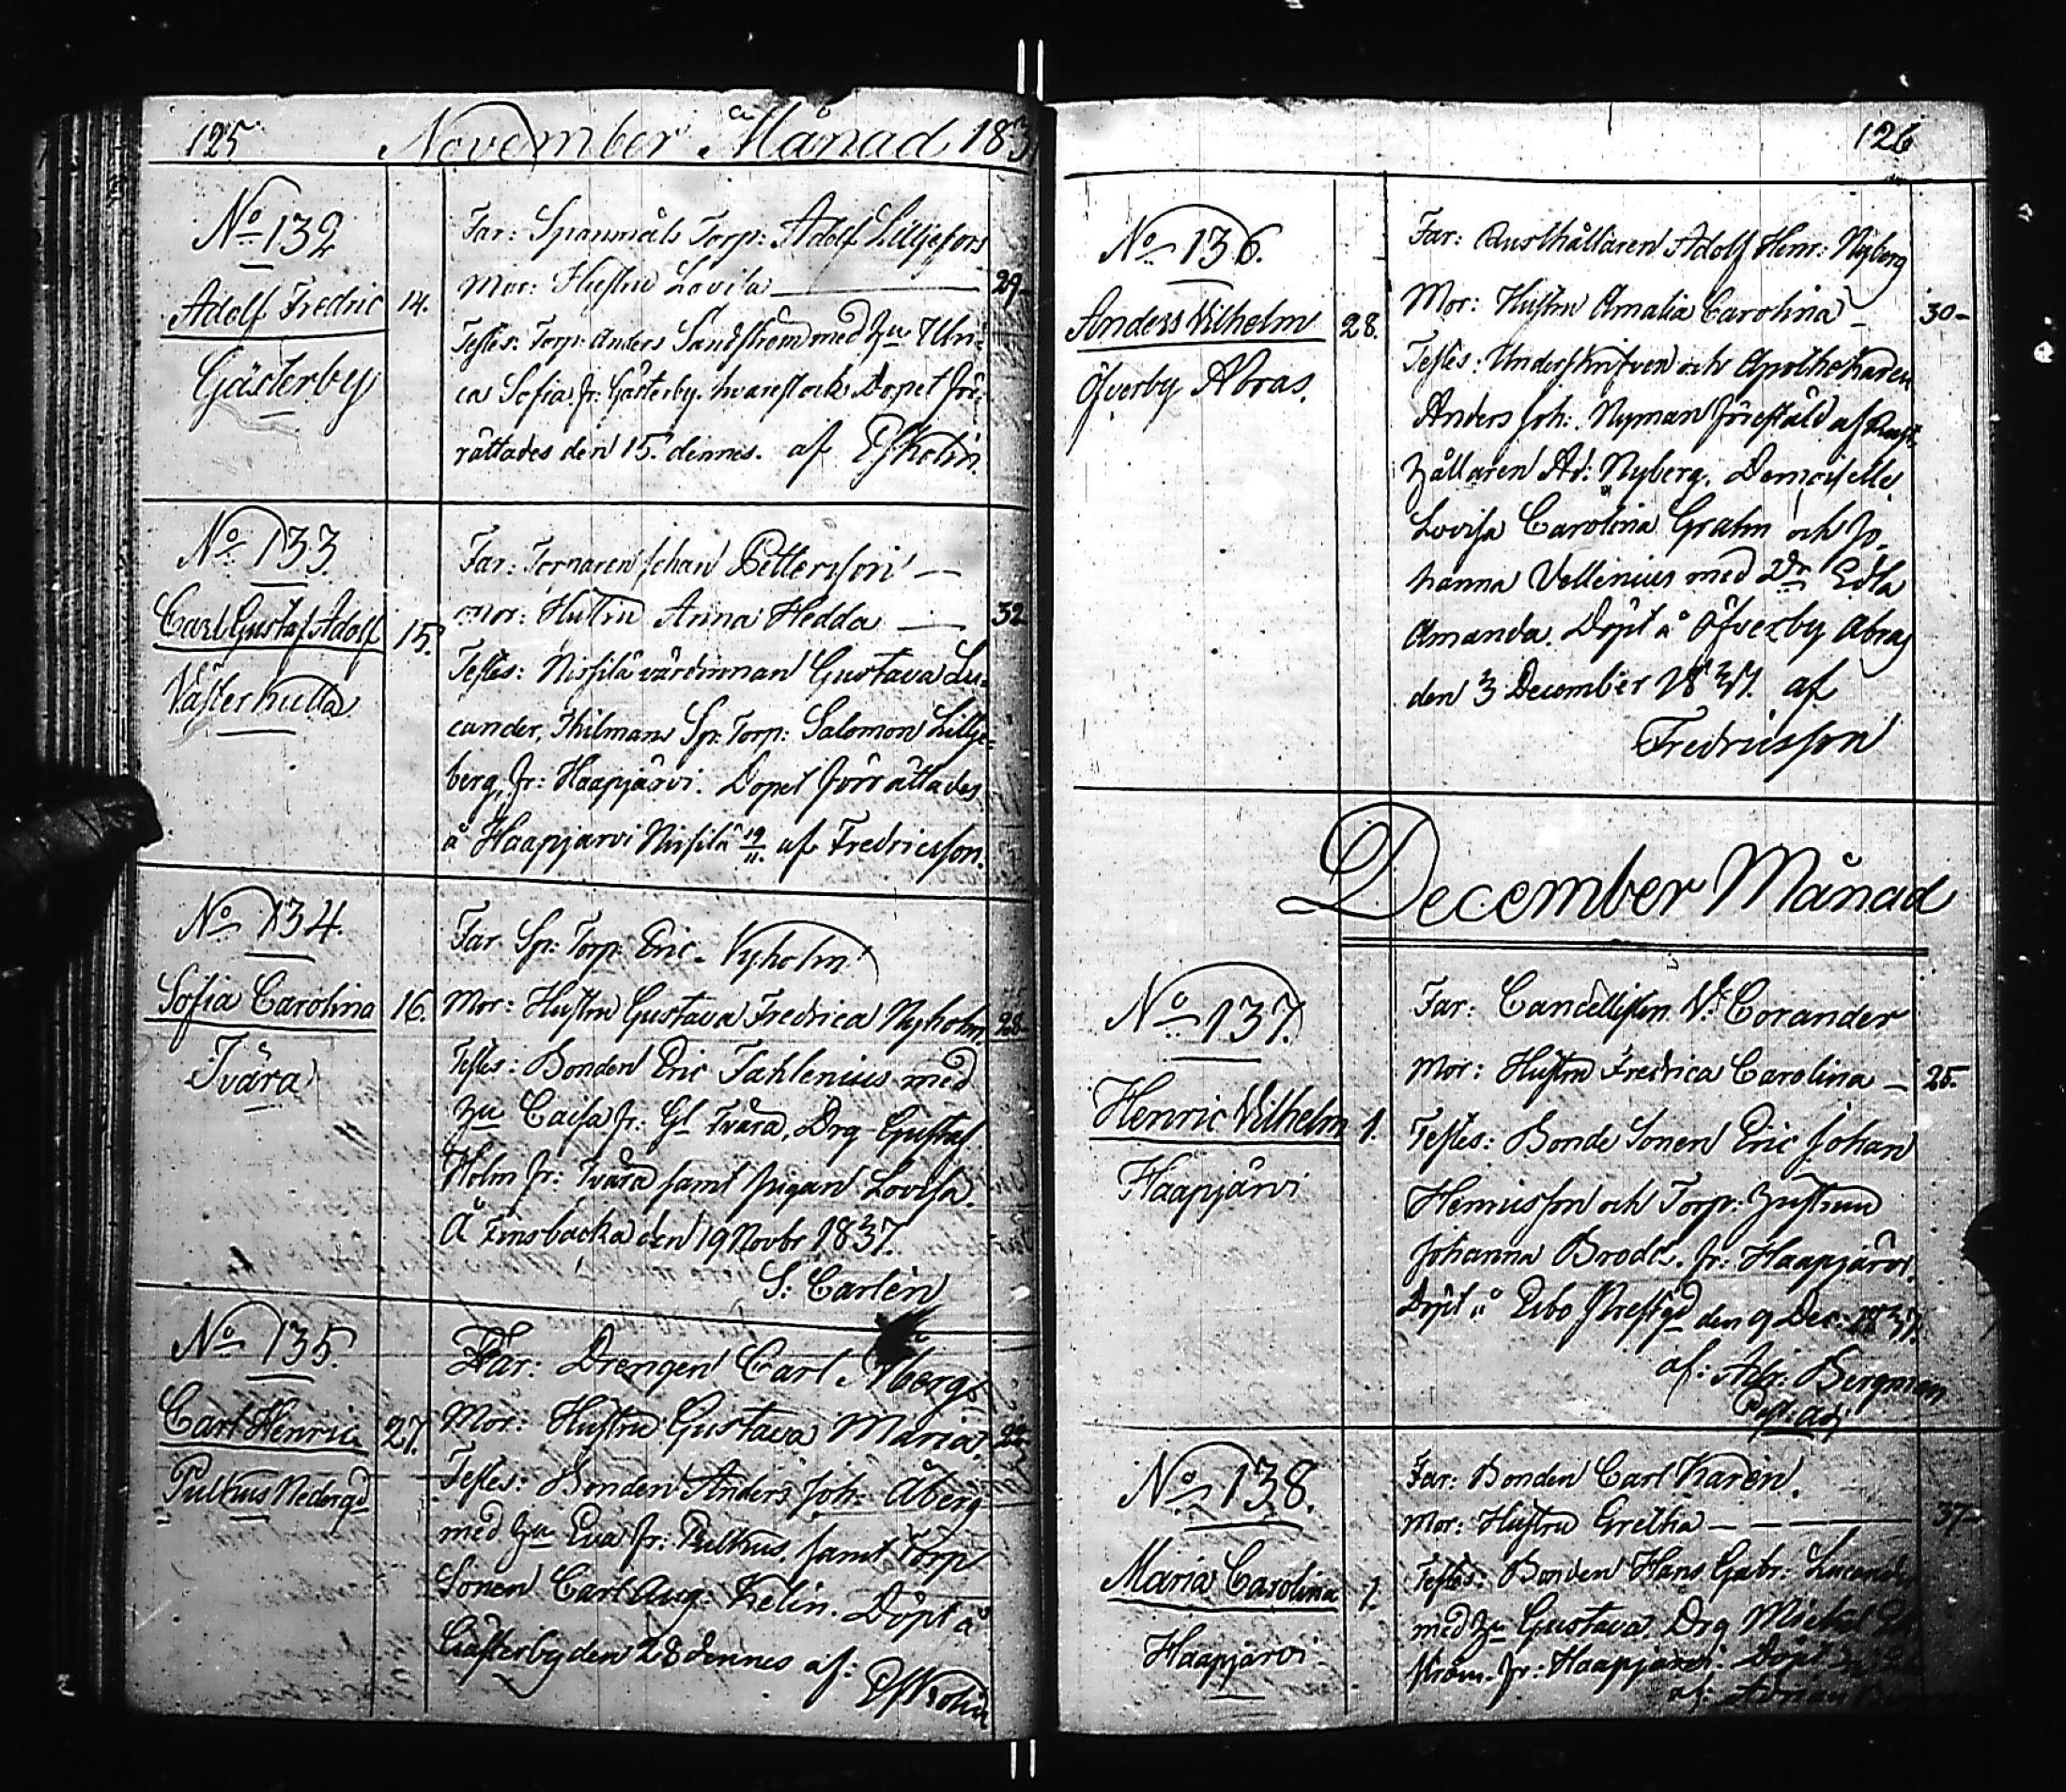 125 November Månad 183
No 132
Adolf Fredric
Gästerby
14.
Far: Spanmåls Torp: Adolf Lilljefors
Mor: Hustru Lovisa 29
Testes: Torp: Anders Sandström med Hu Ulri=
ca Sofia fr: Gästerby. hvarest ock Dopet för=
rättades den 15 dennes. af
No 133
Carl Gustaf Adolf
Västerkulla
15.
Far: Tornaren Johan Pettersson
Mor: Hustru Anna Hedda 32
Testes: Nissilä värdinnan Gustava Lu=
cander, Sp: Torp: Salomon Lillje=
berg, fr: Haapjärvi. Dopet förrättades
å Haapjarvi Nissilä 19/11. af Fredricsson.
No 134.
Sofia Carolina
Tvära
16.
Far Sp: Torp: Eric Nyholm
Mor: Hustru Gustava Fredrica Nyholm. 28
Testes: Bonden Eric Tahlenius med
Hu Caisa fr: Gl Tvära, Drg Gustaf
Holm fr: Tvära samt pigan Lovisa.
Å Finsbacka den 19 Novbr 1837.
S: Carlén
No 135.
Carl Henric
Pulkus Nedergd
27.
Far: Drengen Carl Åberg
Mor: Hustru Gustava Maria. 22
Testes: Bonden Anders Joh: Åberg
med Hu Eva fr: Pulkus, samt Torp
Sonen Carl Aug: Kelin. Döpt å
Gästerby den 28 dennes af:
126
No 136.
Anders Vilhelm
Öfverby Abras.
28.
Far: Rusthållaren Adolf Henr: Nyberg
Mor: Hustru Amalia Carolina 30
Testes: Underskrifven och Apothekaren
Anders Joh: Nyman föreställd af Rust=
hållaren Ad: Nyberg. Demoiselle
Lovisa Carolina Grahn och Jo=
hanna Vellenius med Dn Edla
Amanda. Döpt å Öfverby Abras
den 3 December 1837. af
Fredricsson
December Månad
No 137.
Henric Vilhelm
Haapjärvi
1.
Far: Cancellisten V: Corander
Mor: Hustru Fredrica Carolina 25.
Testes: Bonde Sonen Eric Johan
Henricsson och Torp: hustrun
Johanna Brodd. fr: Haapjärvi.
Döpt å Esbo Prestgd den 9 Dec: 1837.
af: Adr: Bergman
Past: Adj
No 138.
Maria Carolina
Haapjärvi
1.
Far: Bonden Carl Karén.
Mor: Hustru Gretha 37
Testes: Bonden Hans Gabr: Lucander
med Hu Gustava, Drg Michel
ström. fr: Haapjärvi. Döpt
af: Adrian